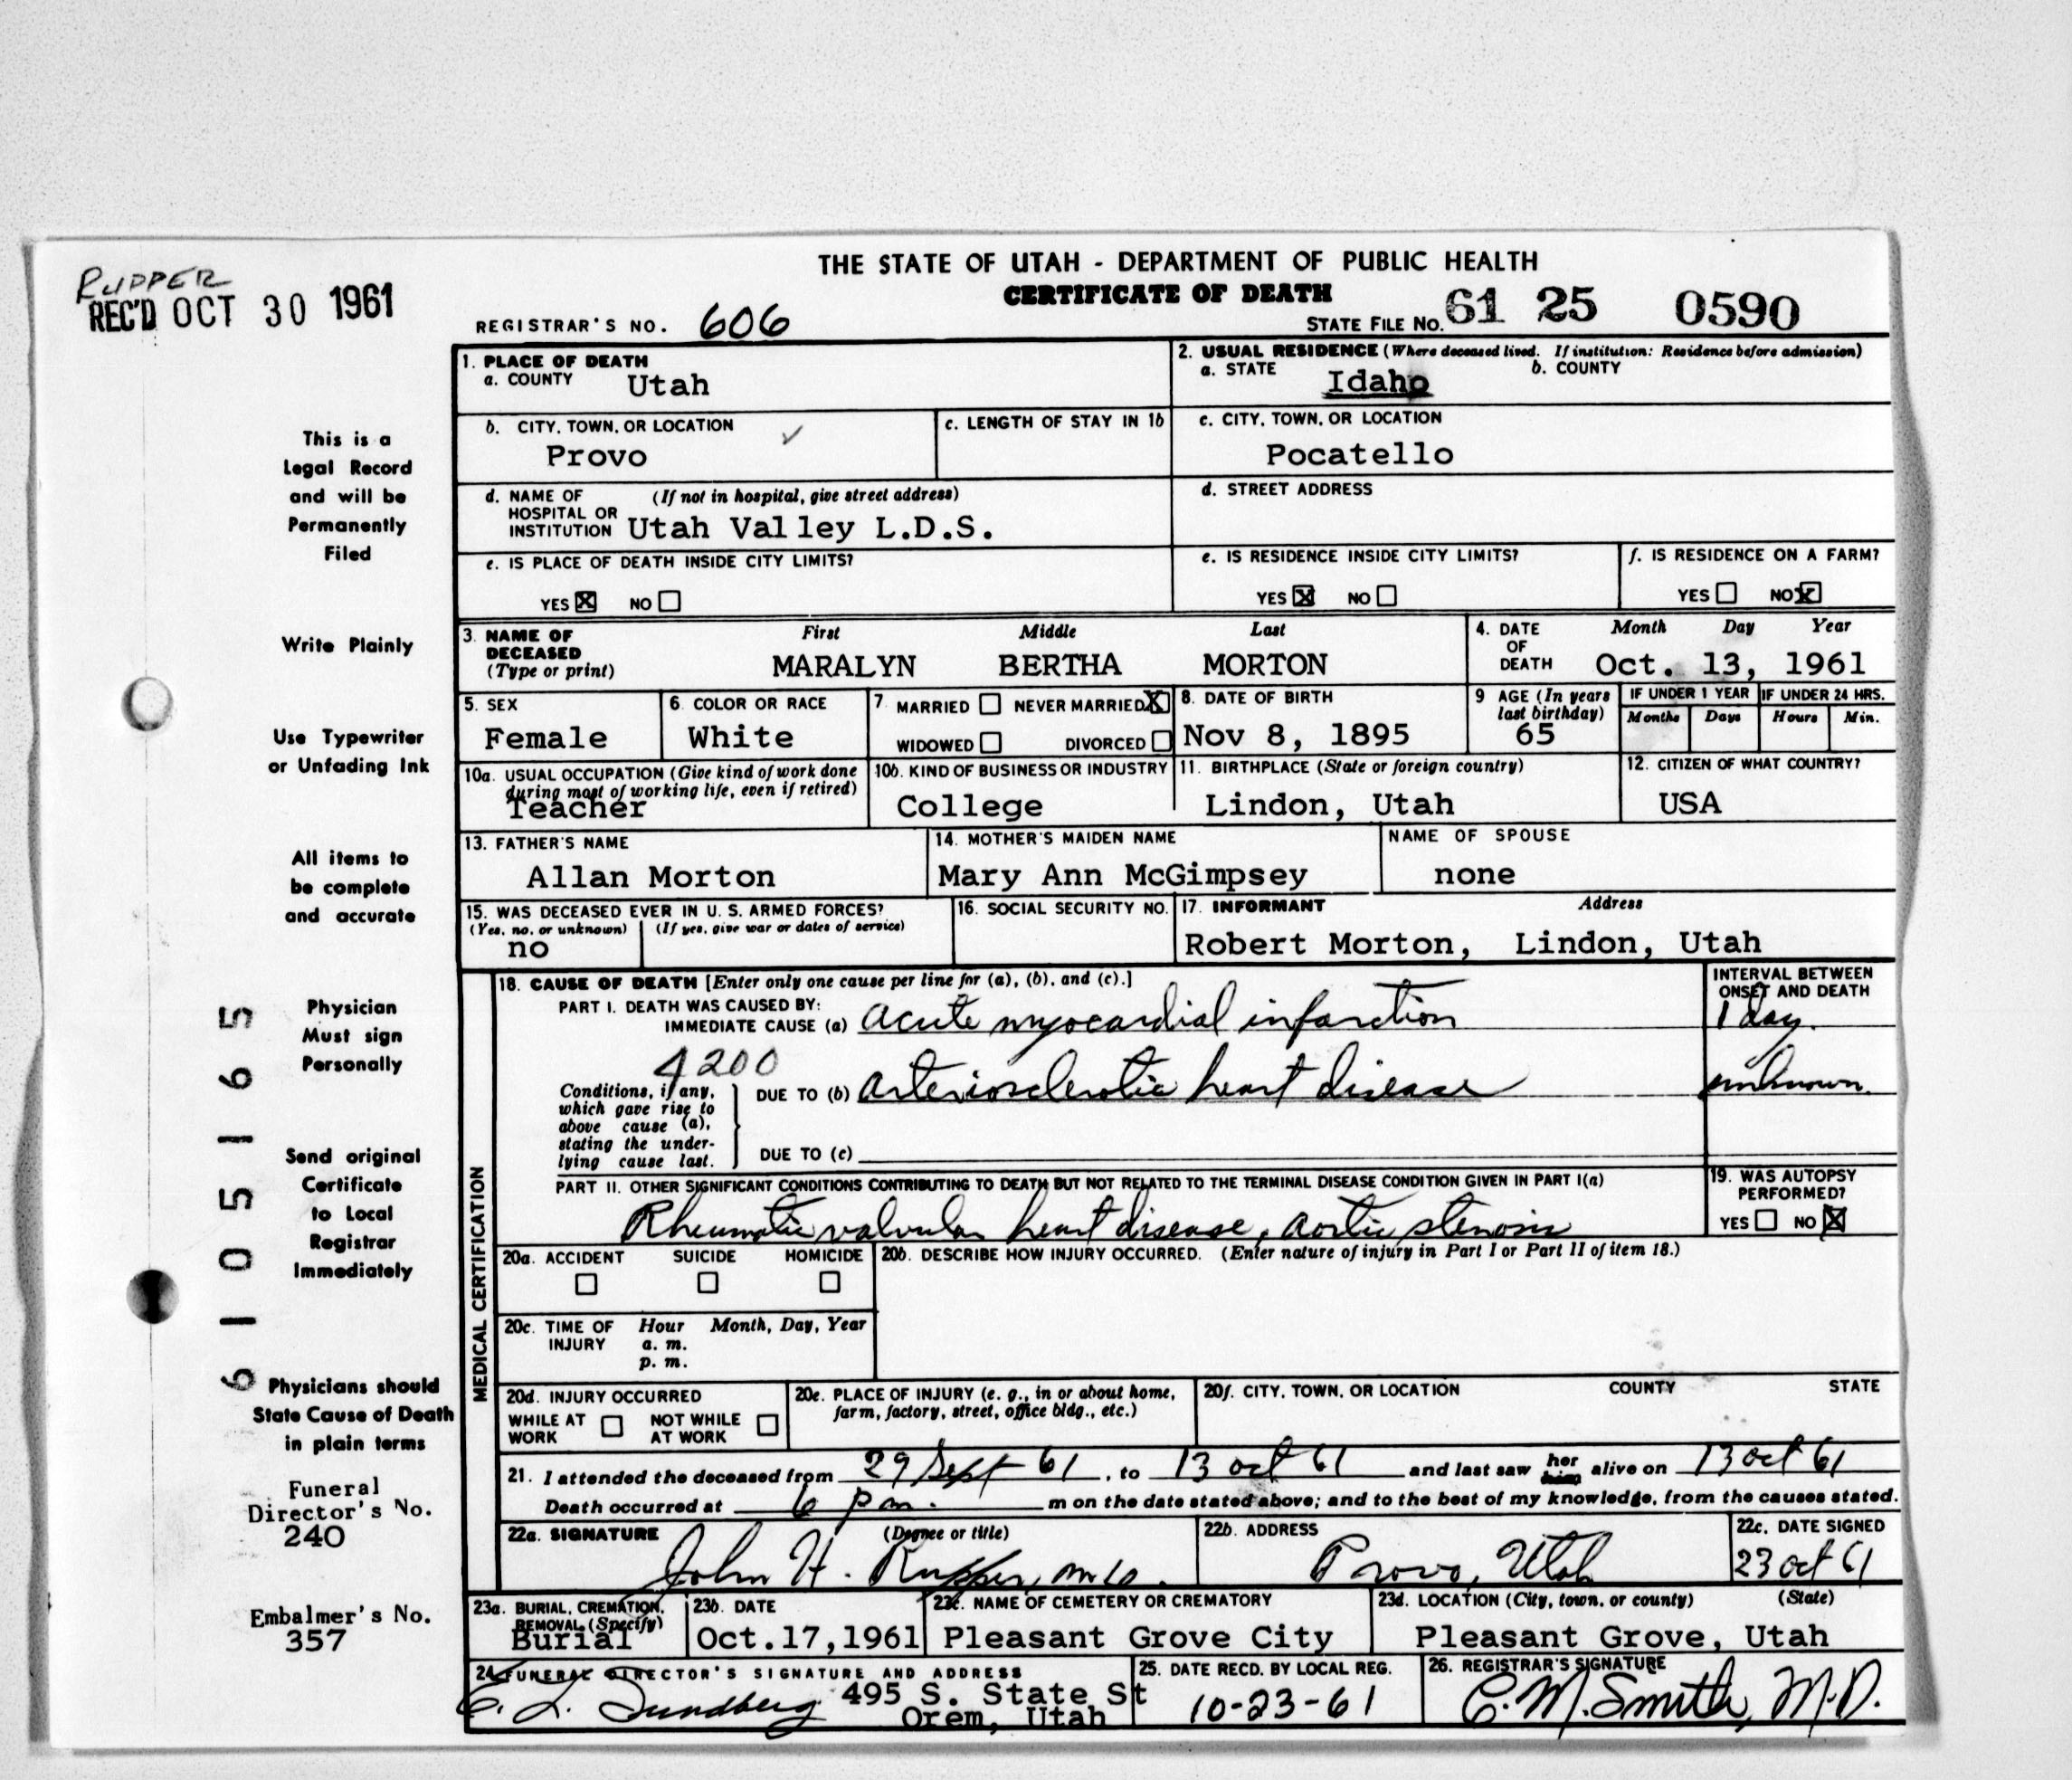 RUPPER
REC'D OCT 30 1961
THE STATE OF UTAH - DEPARTMENT OF PUBLIC HEALTH
CERTIFICATE OF DEATH
REGISTRAR'S NO. 606
STATE FILE NO. 61 25 0590
1. PLACE OF DEATH
a. COUNTY Utah
2. USUAL RESIDENCE (Where deceased lived. If institution: Residence before admission)
a. STATE Idaho b. COUNTY
b. CITY, TOWN, OR LOCATION ✓
Provo
c. LENGTH OF STAY IN 1b
c. CITY, TOWN, OR LOCATION
Pocatello
d. NAME OF (If not in hospital, give street address)
HOSPITAL OR
INSTITUTION Utah Valley L.D.S.
d. STREET ADDRESS
e. IS PLACE OF DEATH INSIDE CITY LIMITS?
YES ☒ NO ☐
e. IS RESIDENCE INSIDE CITY LIMITS?
YES ☒ NO ☐
f. IS RESIDENCE ON A FARM?
YES ☐ NO ☒
3. NAME OF DECEASED (Type or print)
First Middle Last
MARALYN BERTHA MORTON
4. DATE OF DEATH
Month Day Year
Oct. 13, 1961
5. SEX
Female
6. COLOR OR RACE
White
7. MARRIED ☐ NEVER MARRIED ☒
WIDOWED ☐ DIVORCED ☐
8. DATE OF BIRTH
Nov 8, 1895
9 AGE (In years
last birthday)
65
IF UNDER 1 YEAR
Months Days
IF UNDER 24 HRS.
Hours Min.
10a. USUAL OCCUPATION (Give kind of work done
during most of working life, even if retired)
Teacher
10b. KIND OF BUSINESS OR INDUSTRY
College
11. BIRTHPLACE (State or foreign country)
Lindon, Utah
12. CITIZEN OF WHAT COUNTRY?
USA
13. FATHER'S NAME
Allan Morton
14. MOTHER'S MAIDEN NAME
Mary Ann McGimpsey
NAME OF SPOUSE
none
15. WAS DECEASED EVER IN U. S. ARMED FORCES?
(Yes, no, or unknown) (If yes, give war or dates of service)
no
16. SOCIAL SECURITY NO.
17. INFORMANT Address
Robert Morton, Lindon, Utah
MEDICAL CERTIFICATION
18. CAUSE OF DEATH [Enter only one cause per line for (a), (b), and (c).]
INTERVAL BETWEEN
ONSET AND DEATH
PART I. DEATH WAS CAUSED BY:
IMMEDIATE CAUSE (a) acute myocardial infarction 1 day.
4200
Conditions, if any,
which gave rise to
above cause (a),
stating the under-
lying cause last.
DUE TO (b) arteriosclerotic heart disease unknown.
DUE TO (c)
PART II. OTHER SIGNIFICANT CONDITIONS CONTRIBUTING TO DEATH BUT NOT RELATED TO THE TERMINAL DISEASE CONDITION GIVEN IN PART I(a)
Rheumatic valvular heart disease, aortic stenosis
19. WAS AUTOPSY
PERFORMED?
YES ☐ NO ☒
20a. ACCIDENT SUICIDE HOMICIDE
☐ ☐ ☐
20b. DESCRIBE HOW INJURY OCCURRED. (Enter nature of injury in Part I or Part II of item 18.)
20c. TIME OF INJURY
Hour Month, Day, Year
a. m.
p. m.
20d. INJURY OCCURRED
WHILE AT WORK ☐ NOT WHILE AT WORK ☐
20e. PLACE OF INJURY (e. g., in or about home,
farm, factory, street, office bldg., etc.)
20f. CITY, TOWN, OR LOCATION COUNTY STATE
21. I attended the deceased from 29 Sept 61, to 13 Oct 61 and last saw her him alive on 13 Oct 61
Death occurred at 6 p m. m on the date stated above; and to the best of my knowledge, from the causes stated.
22a. SIGNATURE (Degree or title)
John H. Rupper, M.D.
22b. ADDRESS
Provo, Utah
22c. DATE SIGNED
23 Oct 61
23a. BURIAL, CREMATION,
REMOVAL (Specify)
Burial
23b. DATE
Oct.17,1961
23c. NAME OF CEMETERY OR CREMATORY
Pleasant Grove City
23d. LOCATION (City, town, or county) (State)
Pleasant Grove, Utah
24. FUNERAL DIRECTOR'S SIGNATURE AND ADDRESS
E. L. Sundberg 495 S. State St
Orem, Utah
25. DATE RECD. BY LOCAL REG.
10-23-61
26. REGISTRAR'S SIGNATURE
C. M. Smith, M.D.
This is a
Legal Record
and will be
Permanently
Filed
Write Plainly
Use Typewriter
or Unfading Ink
All items to
be complete
and accurate
Physician
Must sign
Personally
Send original
Certificate
to Local
Registrar
Immediately
Physicians should
State Cause of Death
in plain terms
Funeral
Director's No.
240
Embalmer's No.
357
6105165